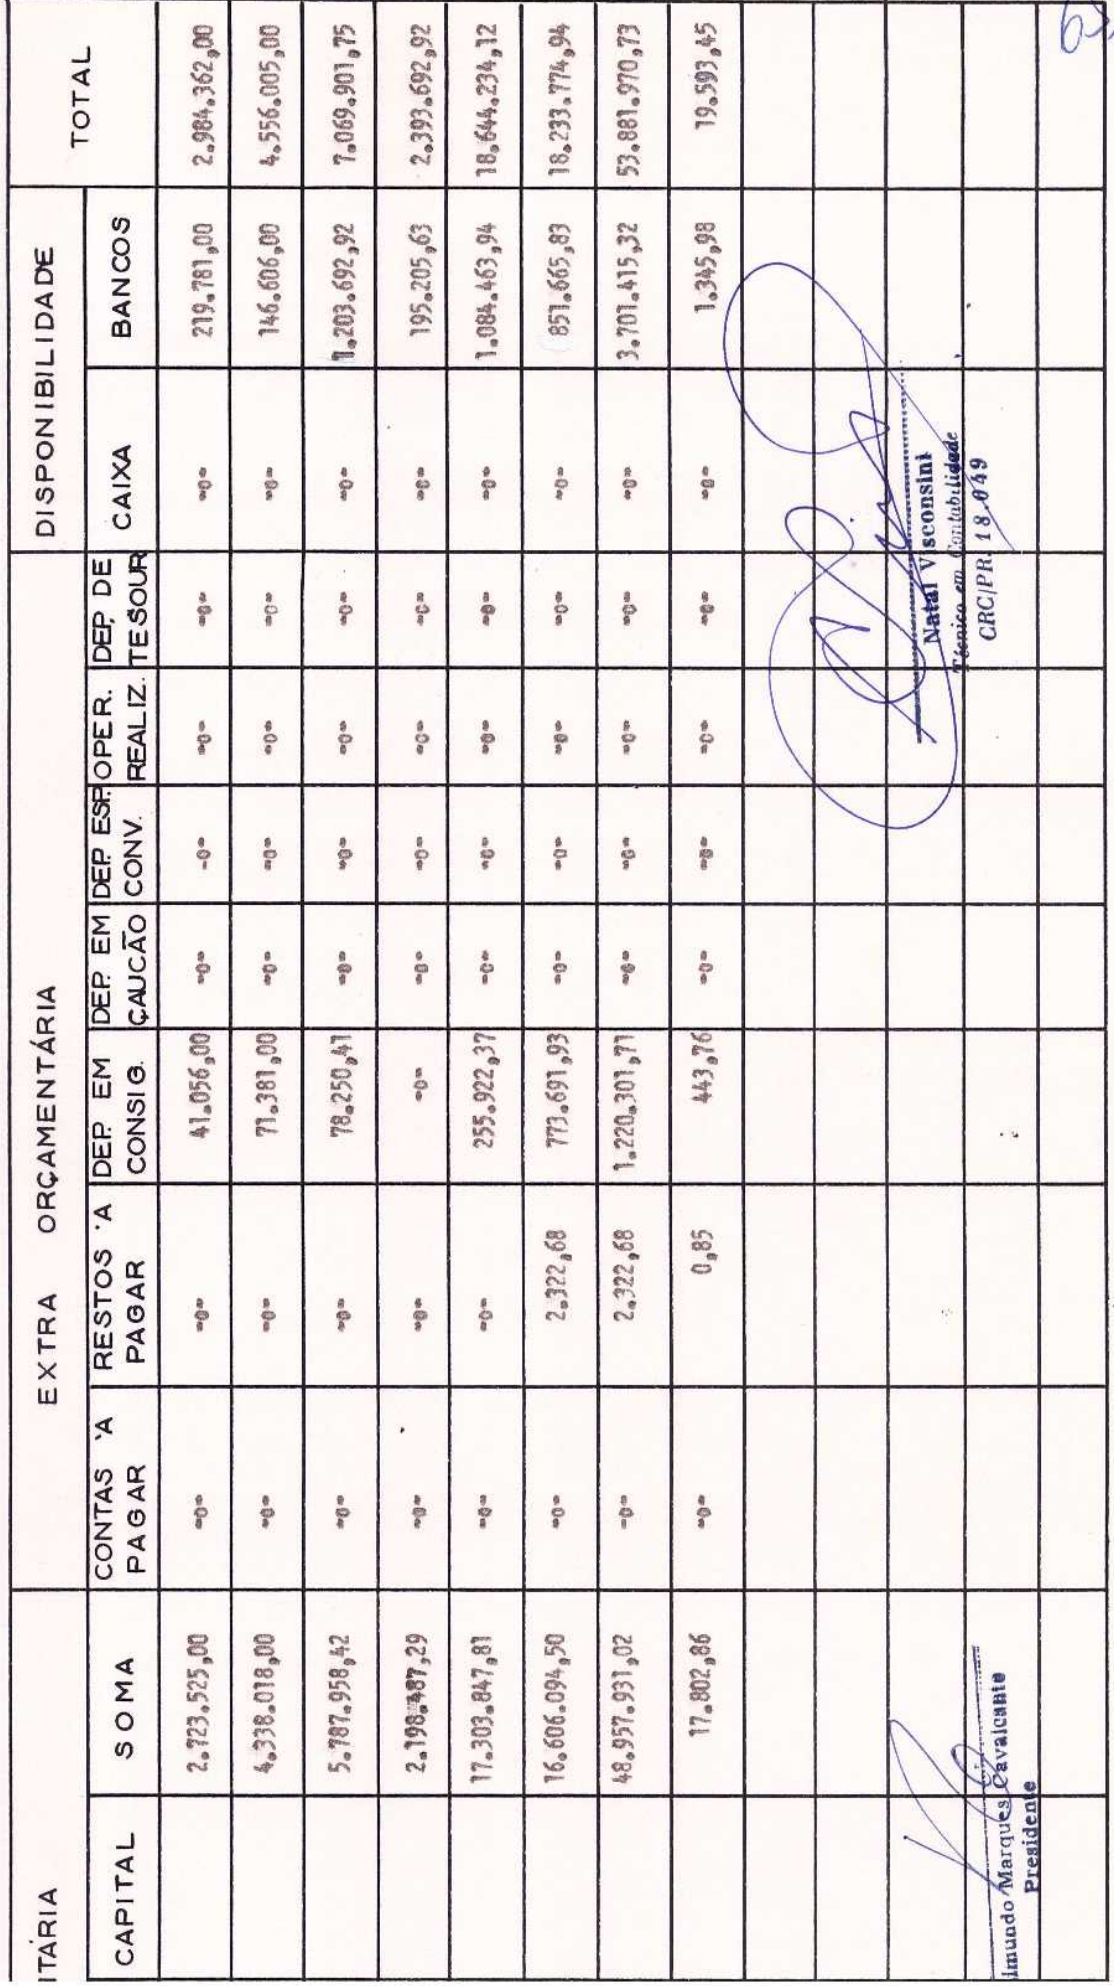 ITÁRIA EXTRA ORÇAMENTÁRIA DISPONIBILIDADE TOTAL
CAPITAL SOMA CONTAS 'A PAGAR RESTOS 'A PAGAR DEP. EM CONSIG. DEP. EM CAUCÃO DEP. ESP. CONV. OPER. REALIZ. DEP. DE TESOUR CAIXA BANCOS
2.723.525,00 -0- -0- 41.056,00 -0- -0- -0- -0- -0- 219.781,00 2.984.362,00
4.338.018,00 -0- -0- 71.381,00 -0- -0- -0- -0- -0- 146.606,00 4.556.005,00
5.787.958,42 -0- -0- 78.250,41 -0- -0- -0- -0- -0- 1.203.692,92 7.069.901,75
2.198.487,29 -0- -0- -0- -0- -0- -0- -0- -0- 195.205,63 2.393.692,92
17.303.847,81 -0- -0- 255.922,37 -0- -0- -0- -0- -0- 1.084.463,94 18.644.234,12
16.606.094,50 -0- 2.322,68 773.691,93 -0- -0- -0- -0- -0- 851.665,83 18.233.774,94
48.957.931,02 -0- 2.322,68 1.220.301,71 -0- -0- -0- -0- -0- 3.701.415,32 53.881.970,73
17.802,86 -0- 0,85 443,76 -0- -0- -0- -0- -0- 1.345,98 19.593,45
imundo Marques Cavalcante
Presidente
Natal Visconsini
Técnico em Contabilidade
CRC/PR. 18.049